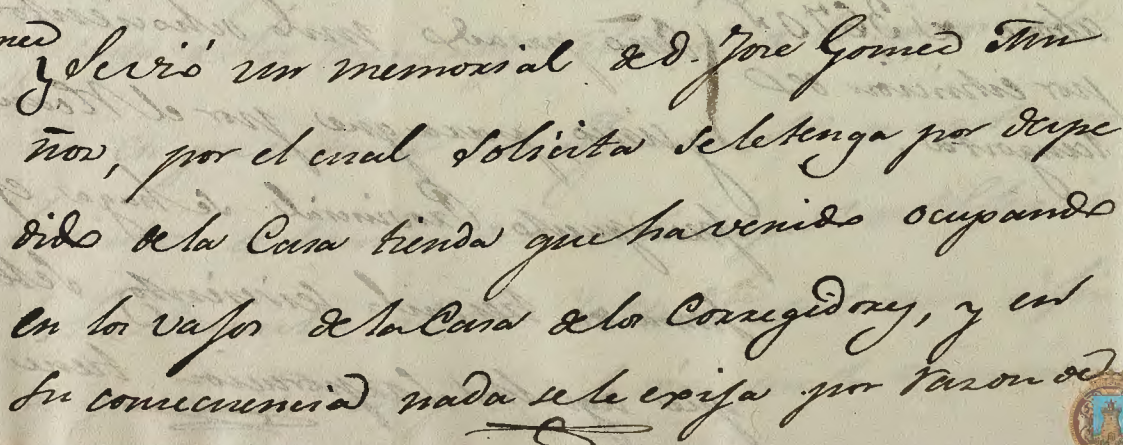 y Se vió un memorial de D. Jose Gomez Mu
ñoz, por el cual Solicita se le tenga por despe
dido de la Casa tienda que ha venido ocupando
en los vajos de la Casa de los Corregidores, y en
Su consecuencia nada se le exija por razon de